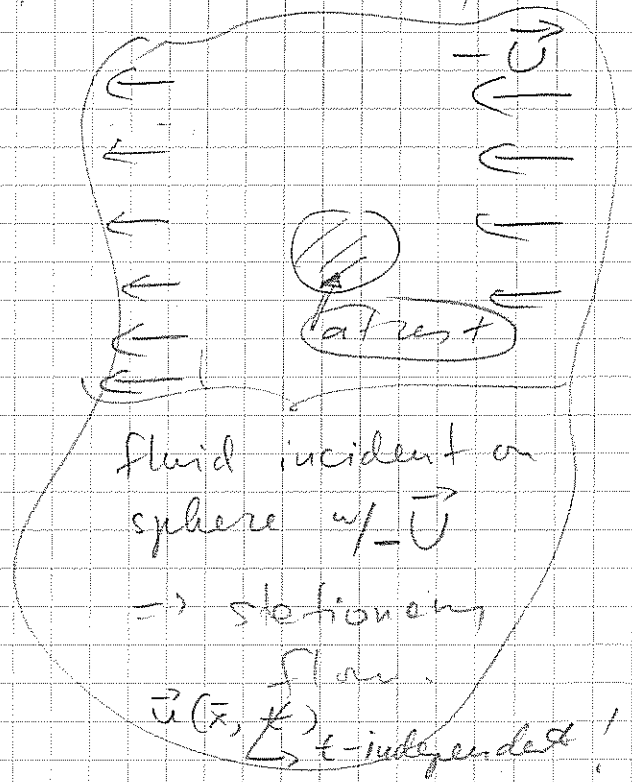 - U⃗
at rest
fluid incident on
sphere w/ -U⃗
=> stationary
flow.
u⃗(x̄, t)
↳ t-independent!